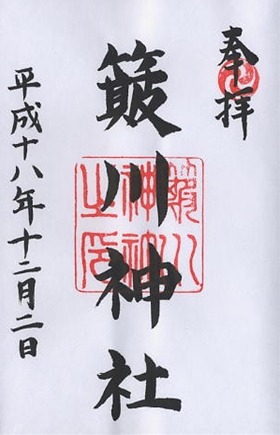 奉拝
簸川神社
平成十八年十二月二日
簸川神社之印